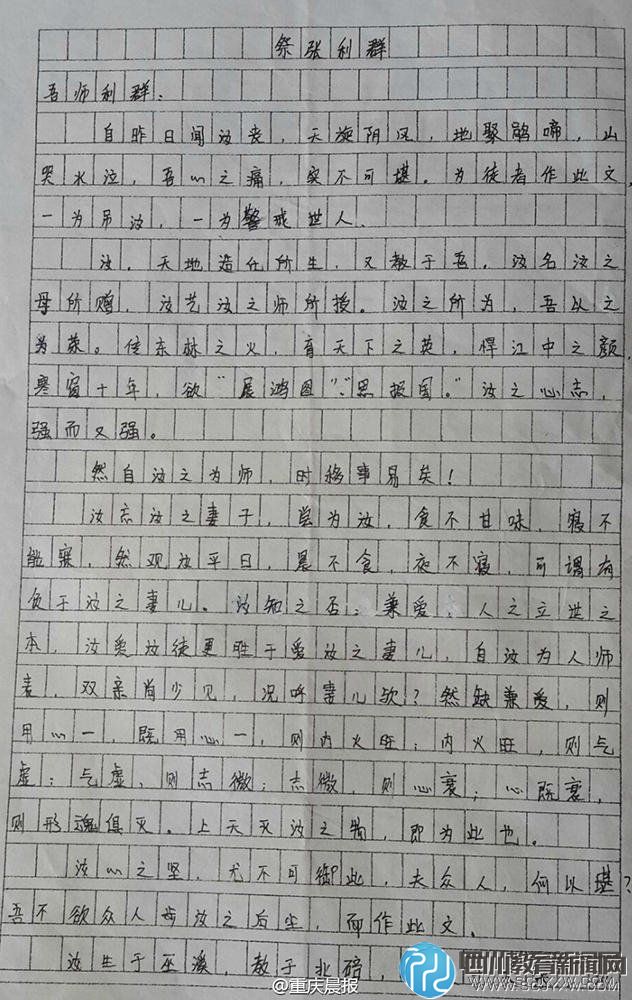 祭张利群
吾师利群：
自昨日闻汝丧，天旋阴风，地聚鹃啼，山
哭水泣，吾心之痛，实不可堪。为徒者作此文，
一为吊汝，一为警戒世人。
汝，天地造化所生，又教于吾，汝名汝之
母所赠，汝艺汝之师所授。汝之所为，吾以之
为荣。传东林之火，育天下之英，悍江中之颜，
寒窗十年，欲“展鸿图”“思报国。”汝之心志，
强而又强。
然自汝之为师，时移事易矣！
汝念汝之妻子，尝为汝，食不甘味，寝不
能寐，然观汝平日，晨不食，夜不寝，可谓有
负于汝之妻儿。汝知之否：兼爱，人之立世之
本，汝爱汝徒更胜于爱汝之妻儿，自汝为人师
表，双亲尚少见，况呼妻儿欤？然缺兼爱，则
用心一，既用心一，则内火旺；内火旺，则气
虚；气虚，则志微；志微，则心衰；心既衰，
则形魂俱灭。上天灭汝之，即为此也。
汝心之坚，尤不可御此，夫众人，何以堪？
吾不欲众人步汝之后尘，而作此文。
汝生于巫溪，教于北碚，
@重庆晨报
四川教育新闻网
www.scjy22xw.com